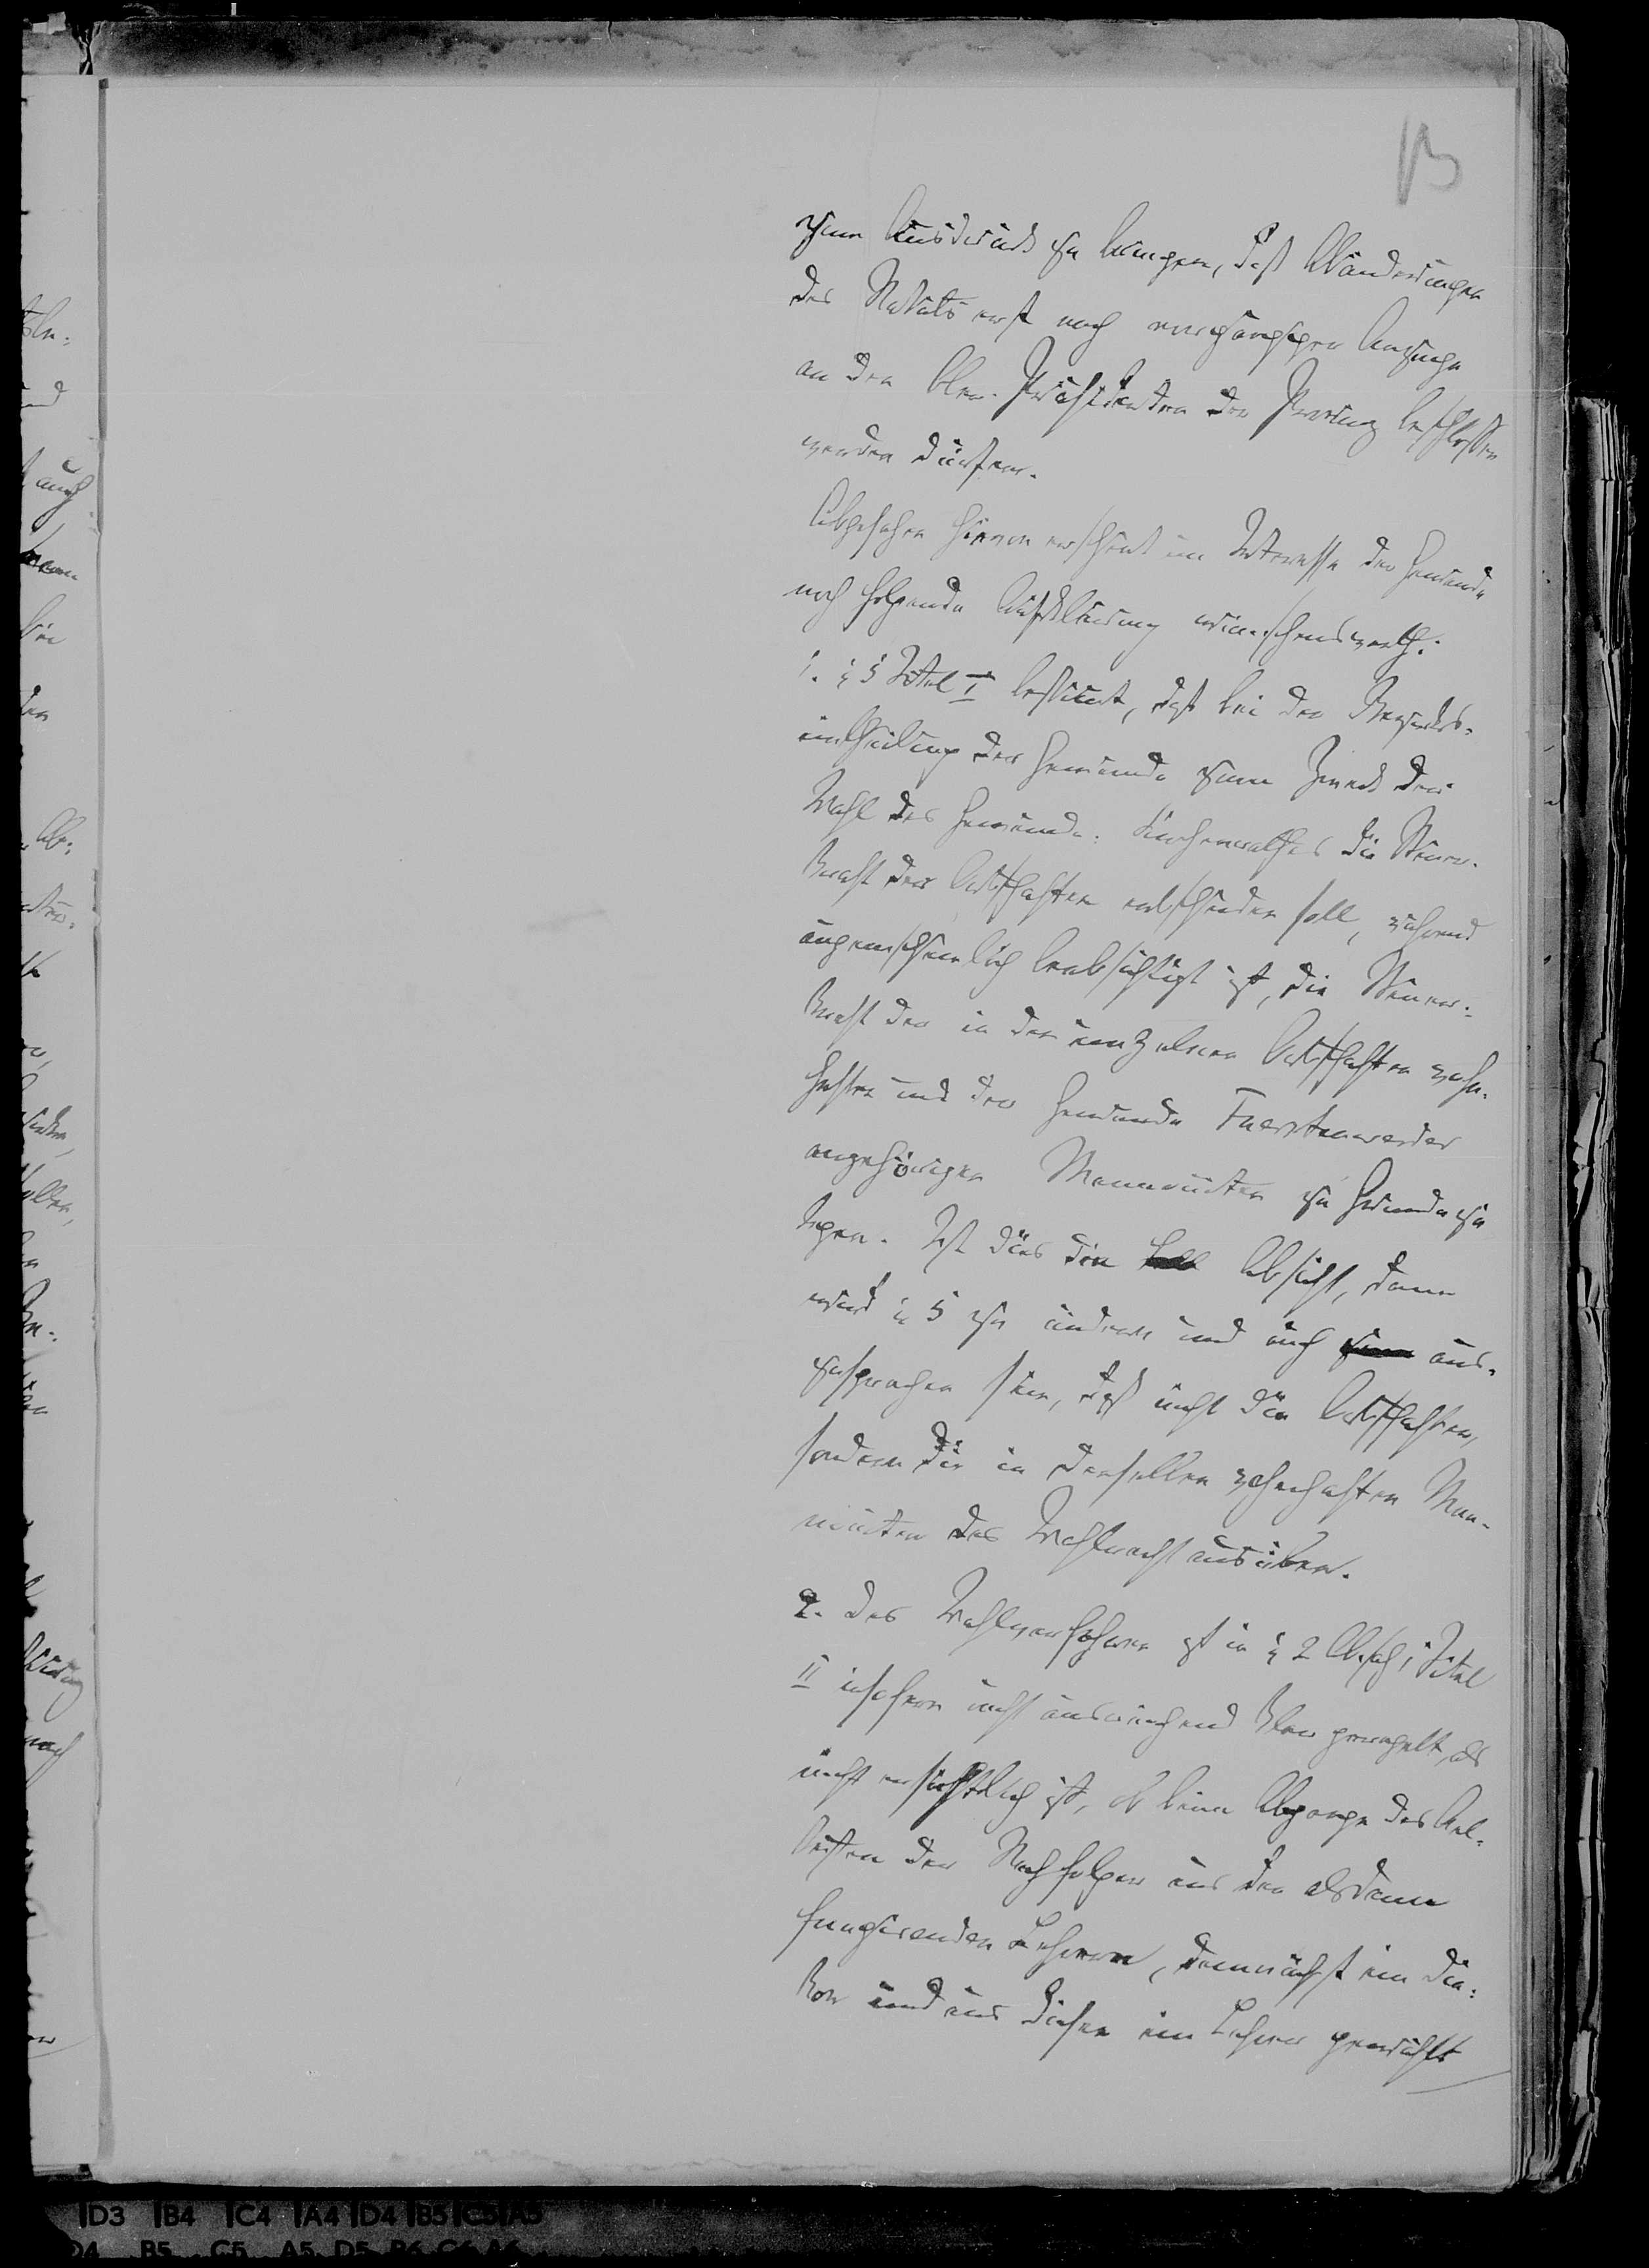 13
zum Ausdruck zu bringen, daß Abänderungen
des Statuts erst nach vorgängiger Anzeige
an den Ober-Präsidenten der Provinz beschlossen
werden dürfen.
Abgesehen hiervon erscheint im Interesse der Gemeinde
noch folgende Aufklärung wünschenswerth:
1. § 5 Titel I bestimmt, daß bei der Bezirks-
eintheilung der Gemeinde zum Zweck der
Wahl des Gemeinde-Kirchenrathes die Steuer-
kraft der Ortschaften entscheiden soll, während
augenscheinlich beabsichtigt ist, die Steuer-
kraft der in den einzelnen Ortschaften wohn-
haften und der Gemeinde Fuerstenwerder
angehörigen Mennoniten zu Grunde zu
legen. Ist dies die Absicht, dann
wird § 5 zu ändern und auch aus-
zusprechen sein, daß nicht die Ortschaften,
sondern die in denselben wohnhaften Men-
noniten das Wahlrecht ausüben.
2. Das Wahlverfahren ist in § 2 Absatz 1 Titel
II insofern nicht ausreichend klar geregelt, als
nicht ersichtlich ist, ob beim Abgange des Ael-
testen der Nachfolger aus den alsdann
fungirenden Lehrern, demnächst ein Dia-
kon und aus diesen ein Lehrer gewählt
D3 B4 C4 A4 D4 B5 C5 A5
D4 B5 C5 A5 D5 B6 C6 A6